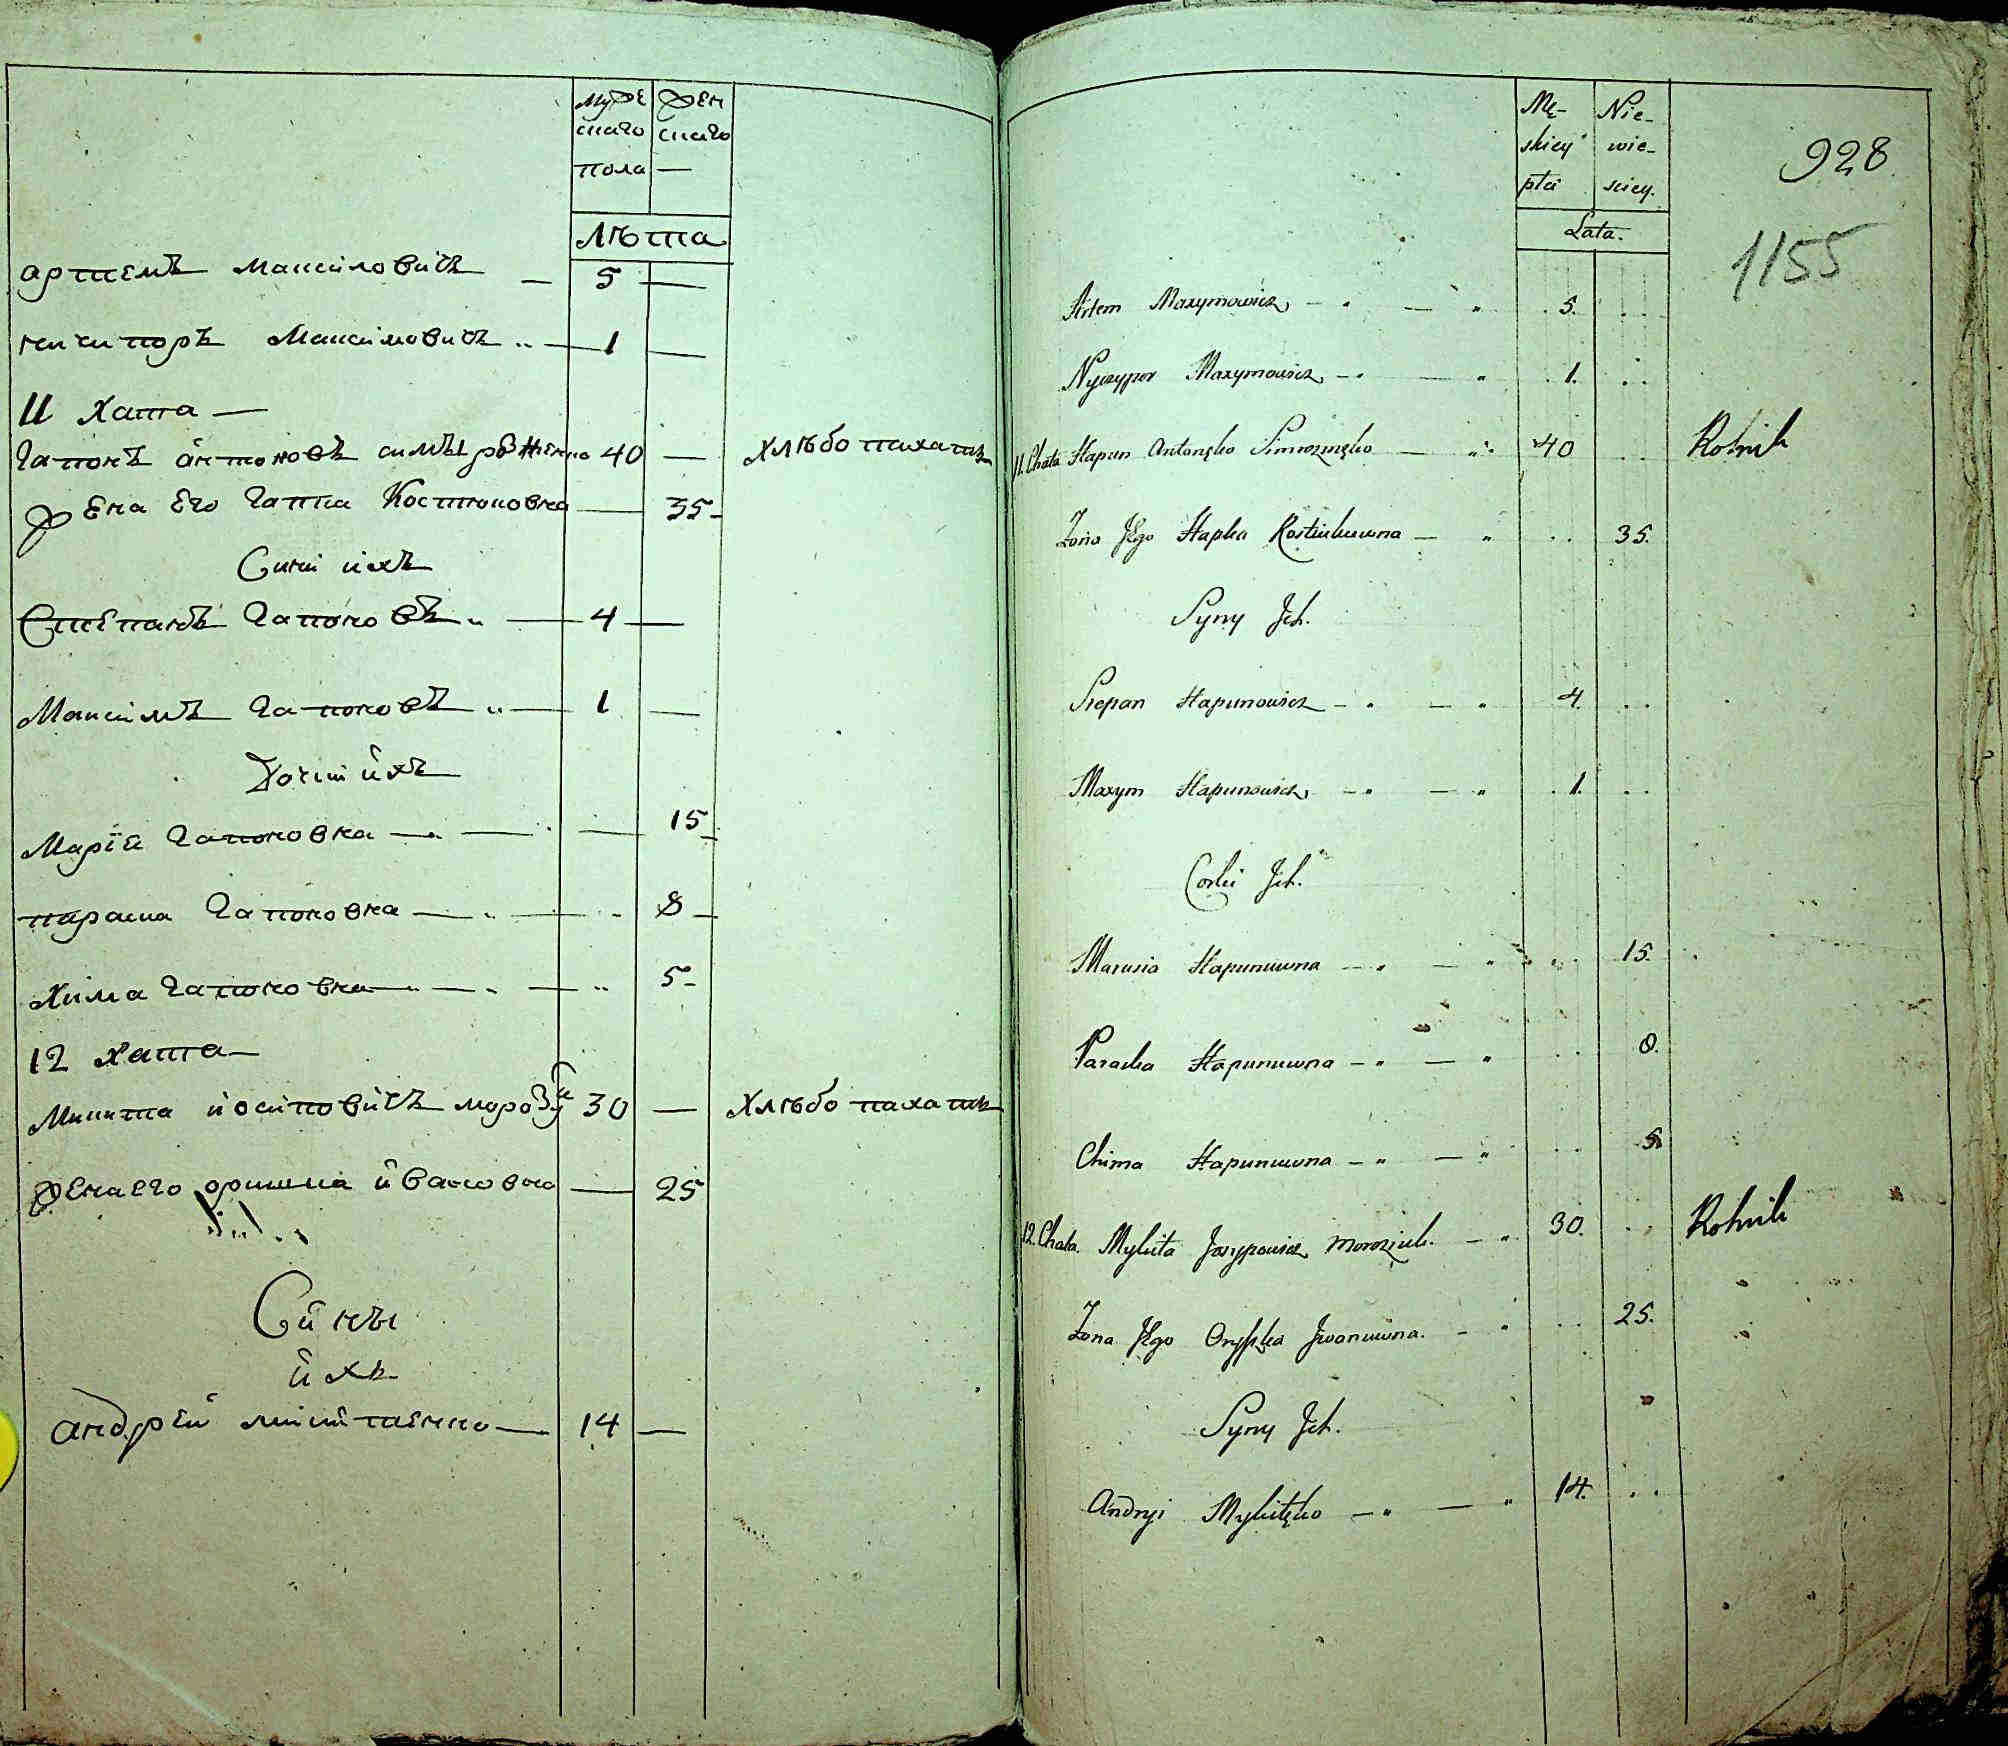 муже жен
скаго скаго
пола —
Лѣта
артемъ Максимовичъ — 5 —
ничипоръ Максимовичъ „ — 1 —
11 хата —
гапонъ антоновъ 40 — хлѣбопахатъ
жена Его гапка Костюковна — 35 -
Сини ихъ
Степанъ Гапоновъ „ — 4 —
Максимъ Гапоновъ „ — 1 —
Дочки ихъ
Марiя Гапоновна — 15
параска Гапоновна — 8 —
Хима гапоновна — 5 -
12 хата —
Микита иосиповичъ морозу 30 — хлѣбопахатъ
жена его оришка ивановна — 25
Сины
ихъ
андрей микитченко — 14 —
Mę- Nie-
skiey wie-
płci sciey.
Lata.
928
1155
Artem Maxymowicz — 5.
Nyczypor Maxymowicz — 1.
11. Chata Hapun Antonęko Simrozinęko — 40 Rolnik
Zona Jego Hapka Kostiukuwna — 35.
Syny Jch.
Stepan Hapunowicz — 4
Maxym Hapunowicz — 1.
Corki Jch.
Marusia Hapunuwna — 15.
Paraska Hapunuwna — 8.
Chima Hapunuwna — 5.
12. Chata. Mykita Josypowicz Moroziuk. — 30. Rolnik
Zona Jego Oryszka Jwanuwna. — 25.
Syny Jch.
Andryi Mykitęko — 14.